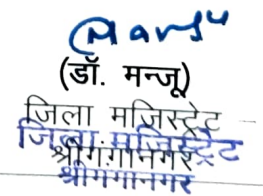 Manju
(डॉ. मन्जू)
जिला मजिस्ट्रेट
जिला मजिस्ट्रेट
श्रीगंगानगर
श्रीगंगानगर